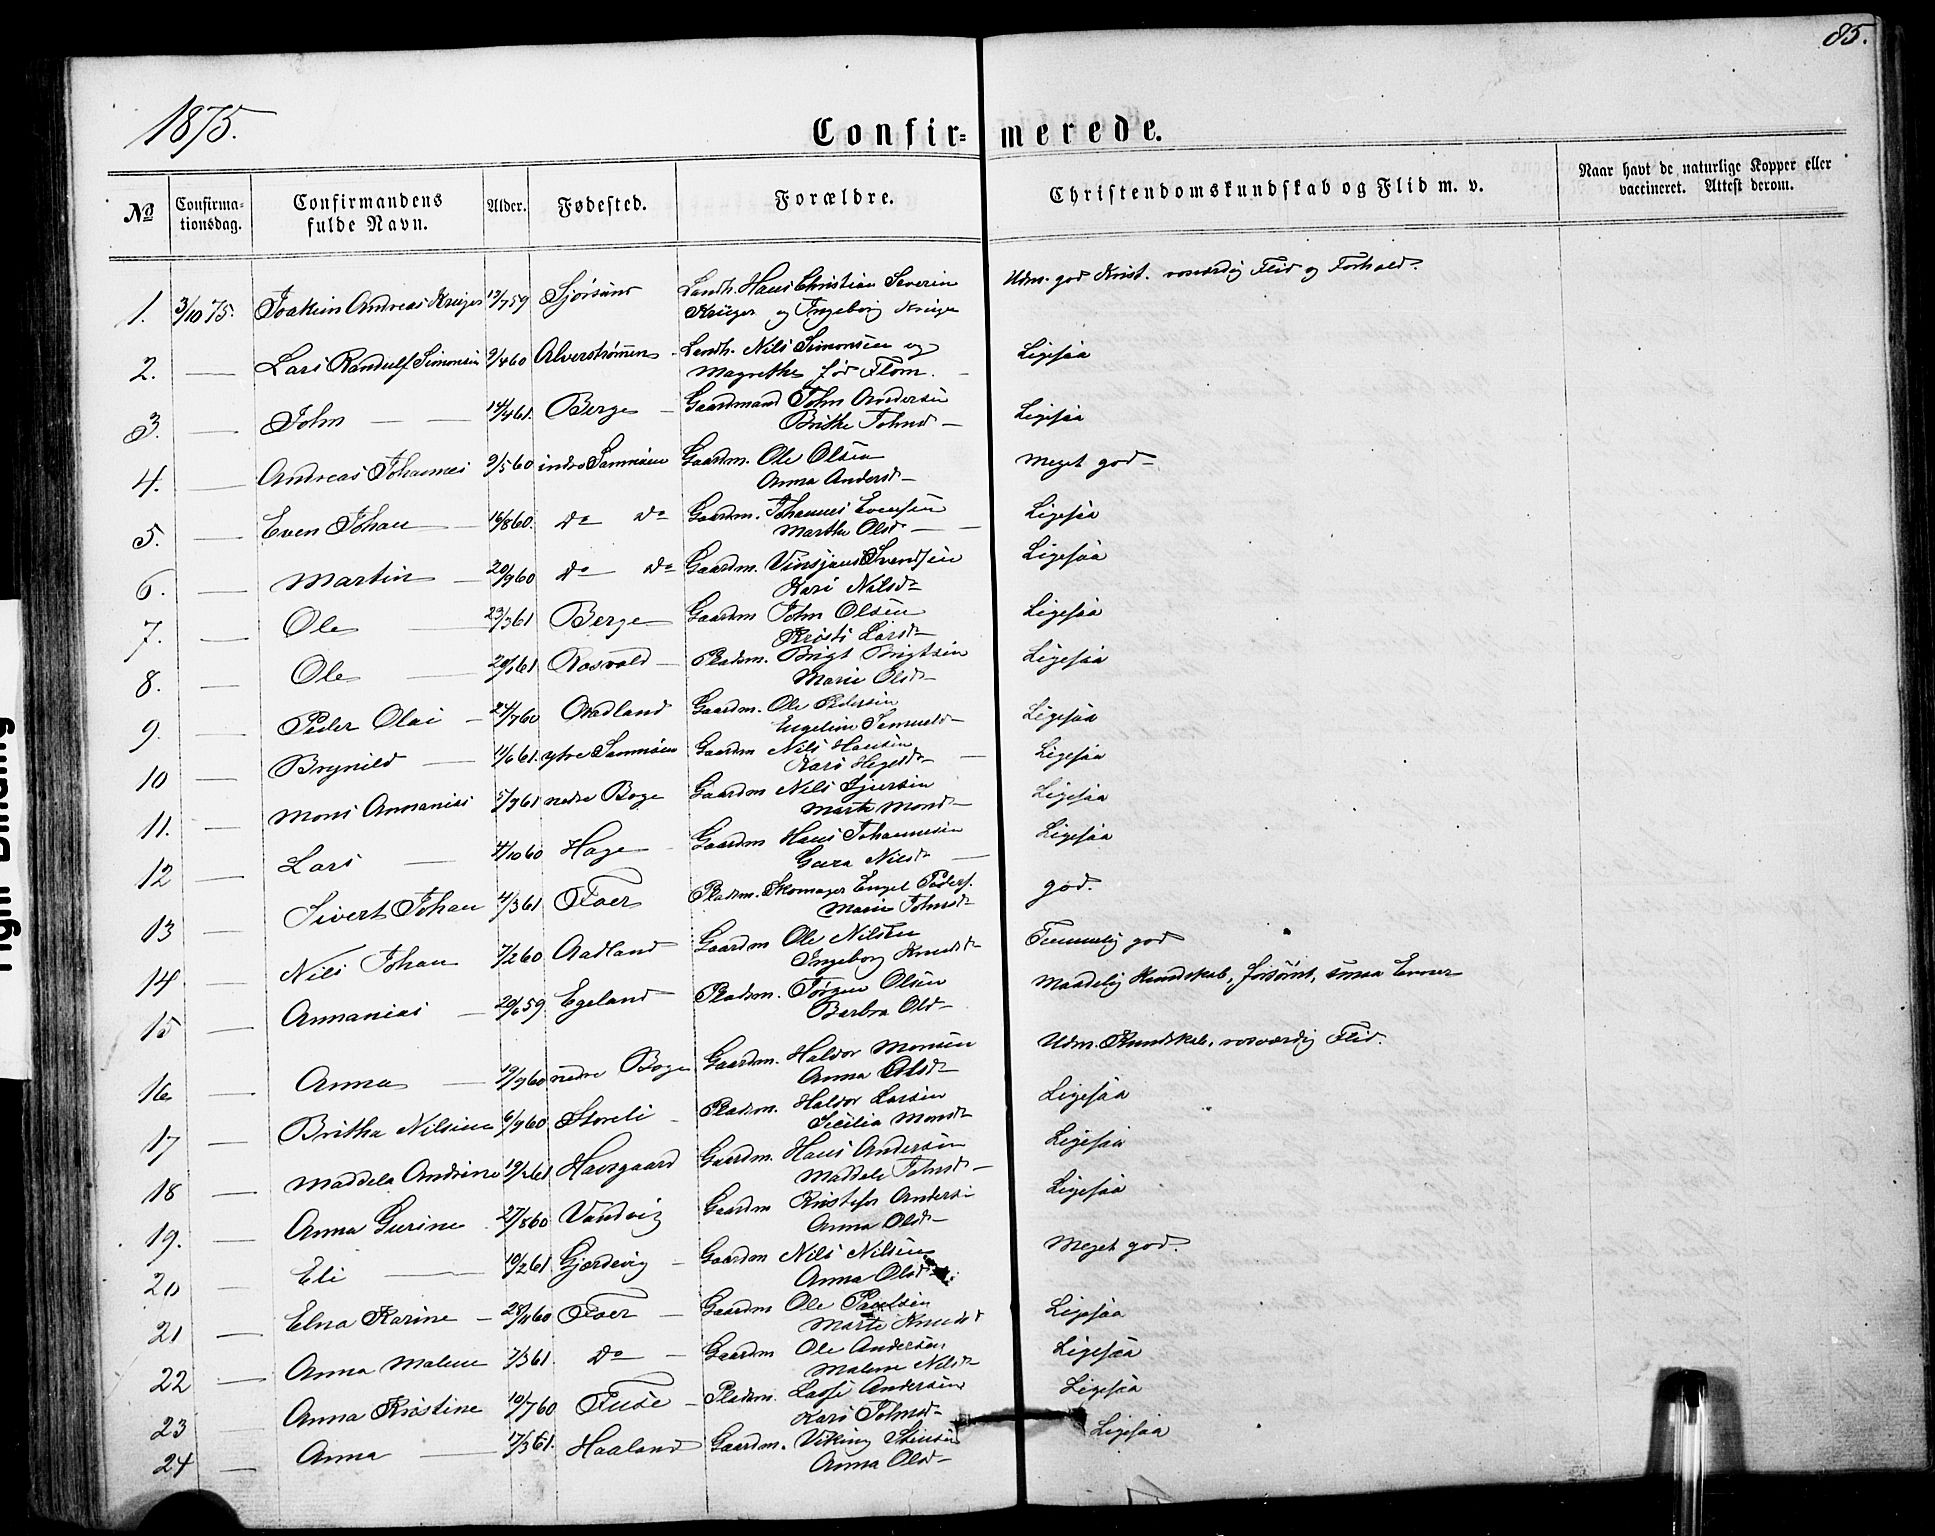 85.
1875.
Confir- merede.
No Confirmationsdag. Confirmandens fulde Navn. Alder. Fødested. Forældre. Christendomskundskab og Flid m. v. Naar havt de naturlige Kopper eller vaccineret. Attest derom.
1. 3/10 75. Joakim Andreas Krüger 13/7 59 Landh. Hans Christian Severin Udm. god Krist. rosværdig Flid og Forhold.
Krüger og Ingeborg Krüger
2. — Lars Randulf Simonsen 9/4 60 Alverstrømmen Landh. Nils Simonsen og Ligesaa
Magrethe fød Flom.
3. — John — 14/4 61. Berge — Gaardmand John Ligesaa
Brithe Johnsd —
4. — Andreas Johannes 9/5 60 indre Samnøen Gaardm. Ole Olsen Meget god —
Anna Andersd —
5. — Even Johan — 16/8 60. do do Gaardm. Johannes Evensen Ligesaa
Martha Olsd —
6. — Martin — 20/9 60 do do Gaardm. Vinsjans Svendsen Ligesaa
Kari Nilsd
7. — Ole — 23/3 61 Berge Gaardm John Olsen Ligesaa
Kristi Larsd
8. — Ole — 20/6 61. Rosvold — Pladsm. Brigt Brigtsen Ligesaa
Mari Olsd —
9. — Peder Olai — 24/7 60 Aadland Gaardm. Ole Pedersen Ligesaa
Engeline Samuelsd —
10 — Brynild — 11/6 61. ytre Samnøen Gaardm Nils Hansen Ligesaa
Kari
11. — Mons Annanias 5/9 61 nedre Boge Gaardm Nils Ligesaa
Marte Monsd —
12 — Lars — 4/10 60 Hage Gaardm Hans Johannesen Ligesaa
Nilsd —
13 — Sivert Johan 11/3 61. Foer Pladsm. Skomager Engel Peders. god.
Marie Johnsd
14 — Nils Johan 7/2 60 Aadland Gaardm Ole Nilsen Temmelig god
Ingeborg Knudsd
15 — Annanias — 20/6 59. Egeland Pladsm. Jørgen Olsen Maadelig Kundskab, forsømt, smaa Evner
Barbra Olsd —
16 — Anna — 19/9 60 nedre Boge Gaardm. Haldor Monsen Udm. Kundskab, rosværdig Flid.
Anna Olsd
17 — Britha Nilsine 6/9 60 Storeli Pladsm. Haldor Larsen Ligesaa
Sicilia Monsd
18 — Maddela Andrine 19/2 61 Havsgaard Gaardm. Hans Andersen Ligesaa
Maddele Johnsd —
19. — Anna Gurine 27/8 60 Vindvig Gaardm Kristofer Andersen Ligesaa
Anna Olsd —
20 — Eli — 10/2 61 Gjerdevig — Gaardm Nils Nilsen Meget god.
Anna Olsd
21 — Elna Karine — 28/11 60 Foer — Gaardm Ole Paulsen Ligesaa
Marte Knudsd
22 — Anna Malene 7/3 61. do — Gaardm Ole Andersen Ligesaa
Malene Nilsd
23 Anna Kristine 10/7 60 Fuse — Pladsm. Lasse Andersen Ligesaa
Kari Johnsd —
24 — Anna — 17/3 61. Haaland Gaardm. Viking Ligesaa
Anna Olsd —